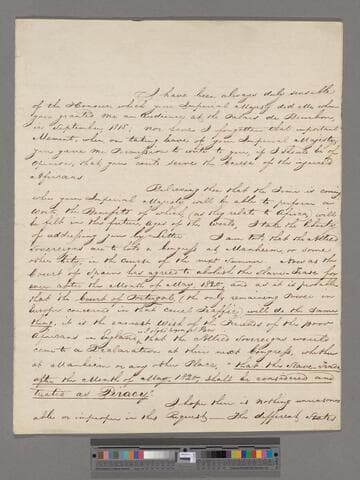 I have been always duly sensible
of the Honour, which your Imperial Majesty did Me when
you granted me an Audience at the Palais de Bourbon,
in September 1815; nor have I forgotten that important
Moment, when on taking leave of your Imperial Majesty,
you gave me Permission to write to you, if I should be of
opinion, that you could serve the Cause of the injured
Africans.
Believing then that the Time is coming
when your Imperial Majesty will be able to perform a
Work, the Benefits of which (as they relate to Africa) will
be felt in the future Ages of the World, I take the Liberty
of addressing you by Letter. I am told, that the Allied
Sovereigns are to hold a Congress at Manheim or some
other Place, in the Course of the next Summer. Now as the
Court of Spain has agreed to abolish the Slave-Trade for
ever after the Month of May 1820, and as it is probable
that the Court of Portugal, (the only remaining Power in
Europe concerned in that cruel Traffic) will do the same
thing, it is the earnest Wish of the Friends of the poor
Africans in England, that the Allied Sovereigns would
come to a Declaration at their next Congress, whether
at Manheim or any other Place, "that the Slave Trade
after the Month of May 1820, shall be considered and
treated as Piracy."
I hope there is nothing unreason
able or improper in this Request. The different States